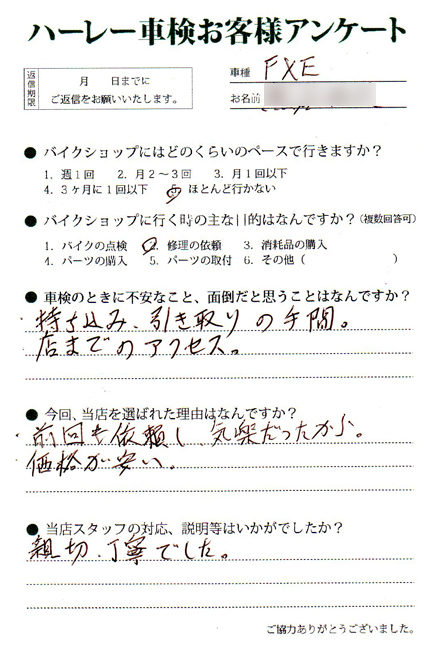 ハーレー車検お客様アンケート
返信期限
月　日までに
ご返信をお願いいたします。
車種 FXE
お名前
● バイクショップにはどのくらいのペースで行きますか？
1. 週1回　2. 月2〜3回　3. 月1回以下
4. 3ヶ月に1回以下　5. ほとんど行かない
● バイクショップに行く時の主な目的はなんですか？(複数回答可)
1. バイクの点検　2. 修理の依頼　3. 消耗品の購入
4. パーツの購入　5. パーツの取付　6. その他（　　　　　）
● 車検のときに不安なこと、面倒だと思うことはなんですか？
持ち込み、引き取りの手間。
店までのアクセス。
● 今回、当店を選ばれた理由はなんですか？
前回も依頼し、気楽だったから。
価格が安い。
● 当店スタッフの対応、説明等はいかがでしたか？
親切、丁寧でした。
ご協力ありがとうございました。